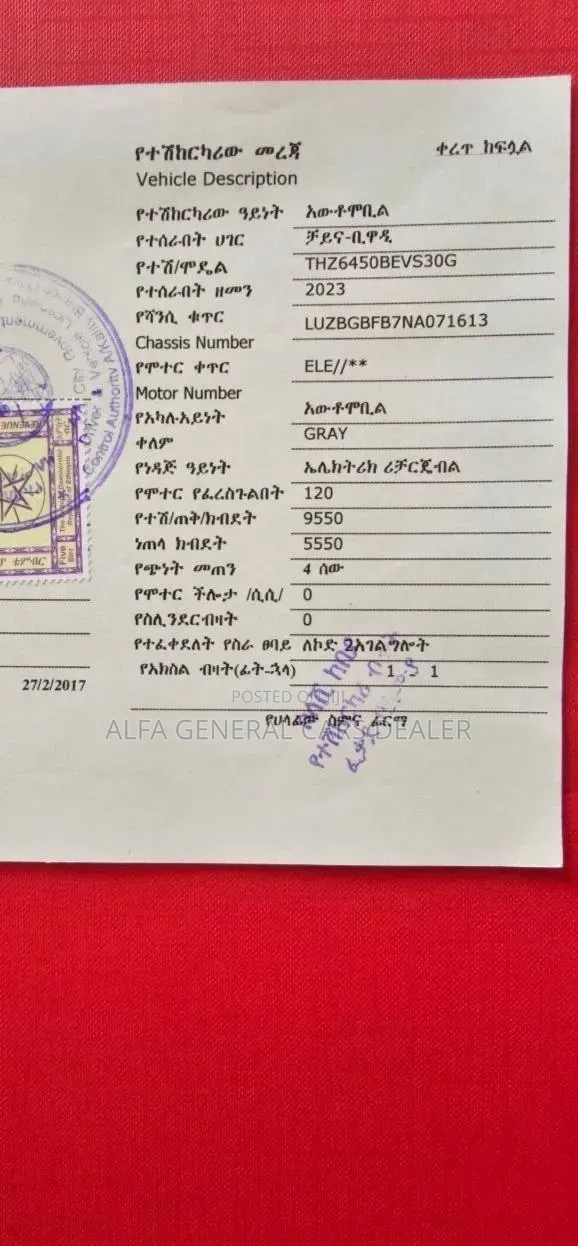 የተሽከርካሪው መረጃ ቀረጥ ከፍሏል
Vehicle Description
የተሽከርካሪው ዓይነት አውቶሞቢል
የተሰራበት ሀገር ቻይና-ቢዋዲ
የተሽ/ሞዴል THZ6450BEVS30G
የተሰራበት ዘመን 2023
የሻንሲ ቁጥር LUZBGBFB7NA071613
Chassis Number
የሞተር ቀጥር ELE//**
Motor Number
የአካሉ-አይነት አውቶሞቢል
ቀለም GRAY
የነዳጅ ዓይነት ኤሌክትሪክ ሪቻርጄብል
የሞተር የፈረስጉልበት 120
የተሽ/ጠቅ/ክብደት 9550
ነጠላ ክብደት 5550
የጭነት መጠን 4 ሰው
የሞተር ችሎታ /ሲሲ/ 0
የሲሊንደርብዛት 0
የተፈቀደለት የስራ ፀባይ ለኮድ 2አገልግሎት
የአክስል ብዛት(ፊት-ኋላ) 1 1
27/2/2017
POSTED ON JIJI
ALFA GENERAL CARS DEALER
የሀላፊው ስምና ፊርማ
Control Authority
REVENUE
Five
Birr